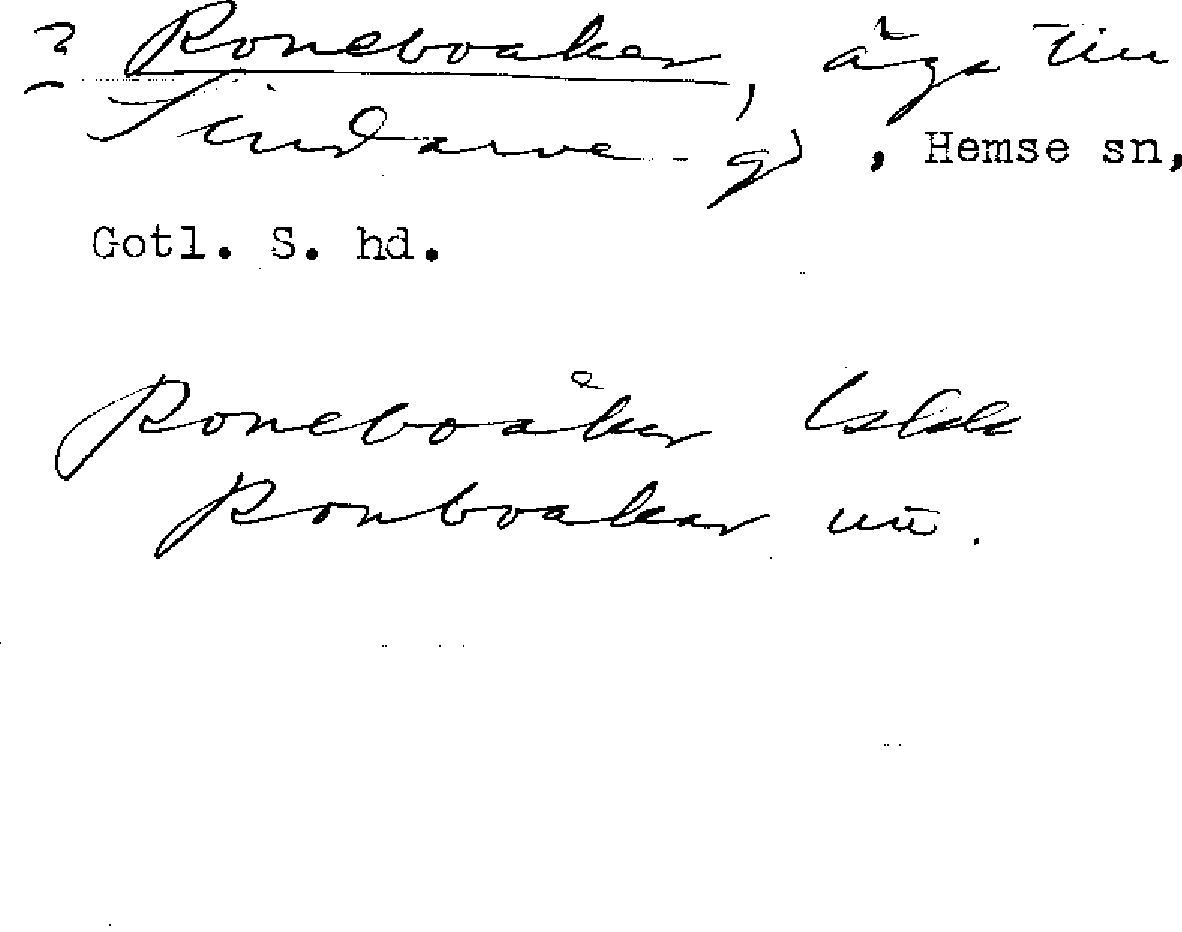 ? Roneboaker, äga till
Sindarve gd, Hemse sn,
Gotl. S. hd.
Roneboåker lskk
Ronboakar uu.